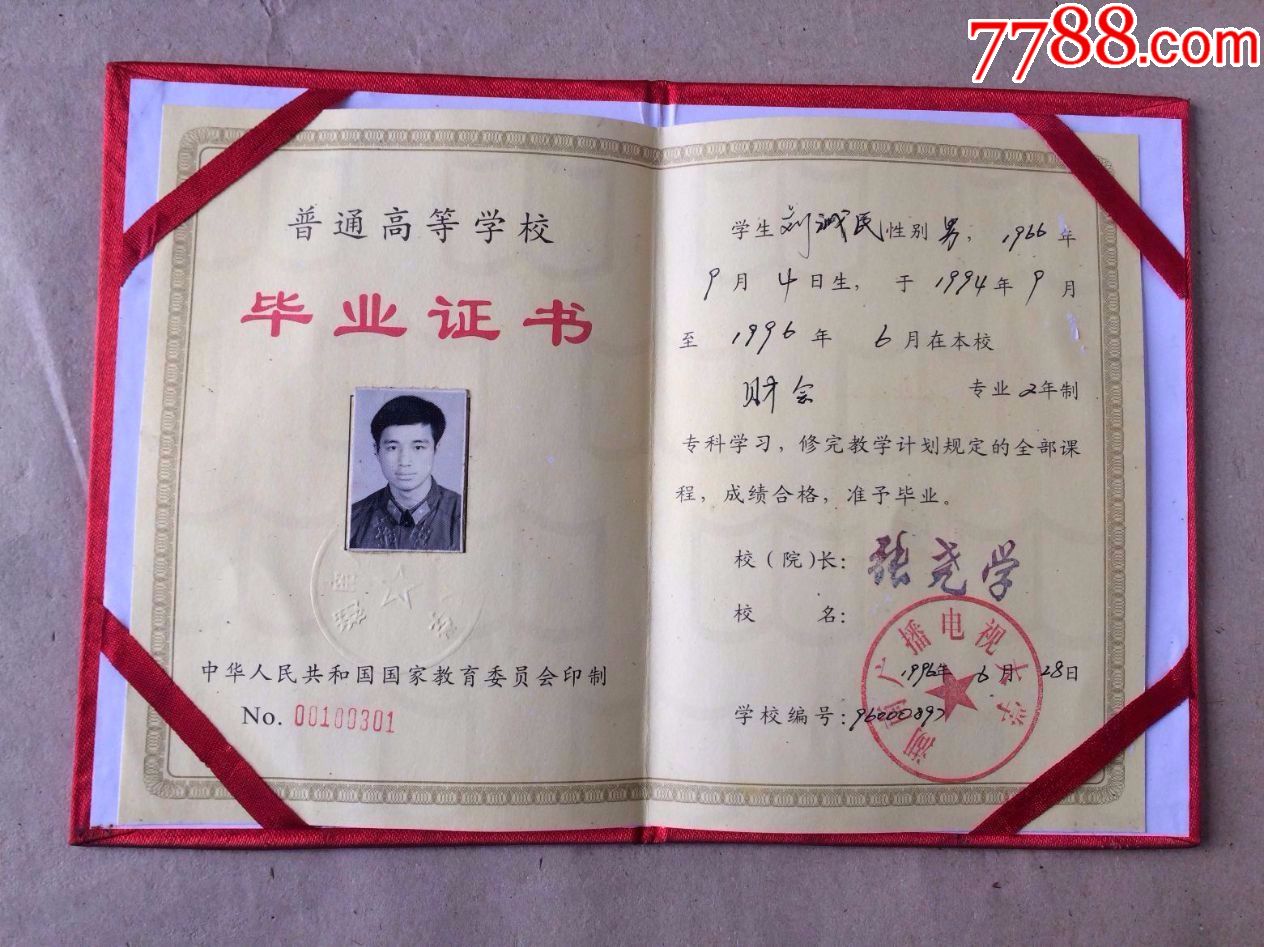 7788.com
普通高等学校
毕业证书
中华人民共和国国家教育委员会印制
No. 00100301
学生刘诚民性别男，1966年
9月4日生，于1994年9月
至1996年6月在本校
财会专业2年制
专科学习，修完教学计划规定的全部课
程，成绩合格，准予毕业。
校（院）长：张尧学
校名：
湖南广播电视大学
1996年6月28日
学校编号：96200897